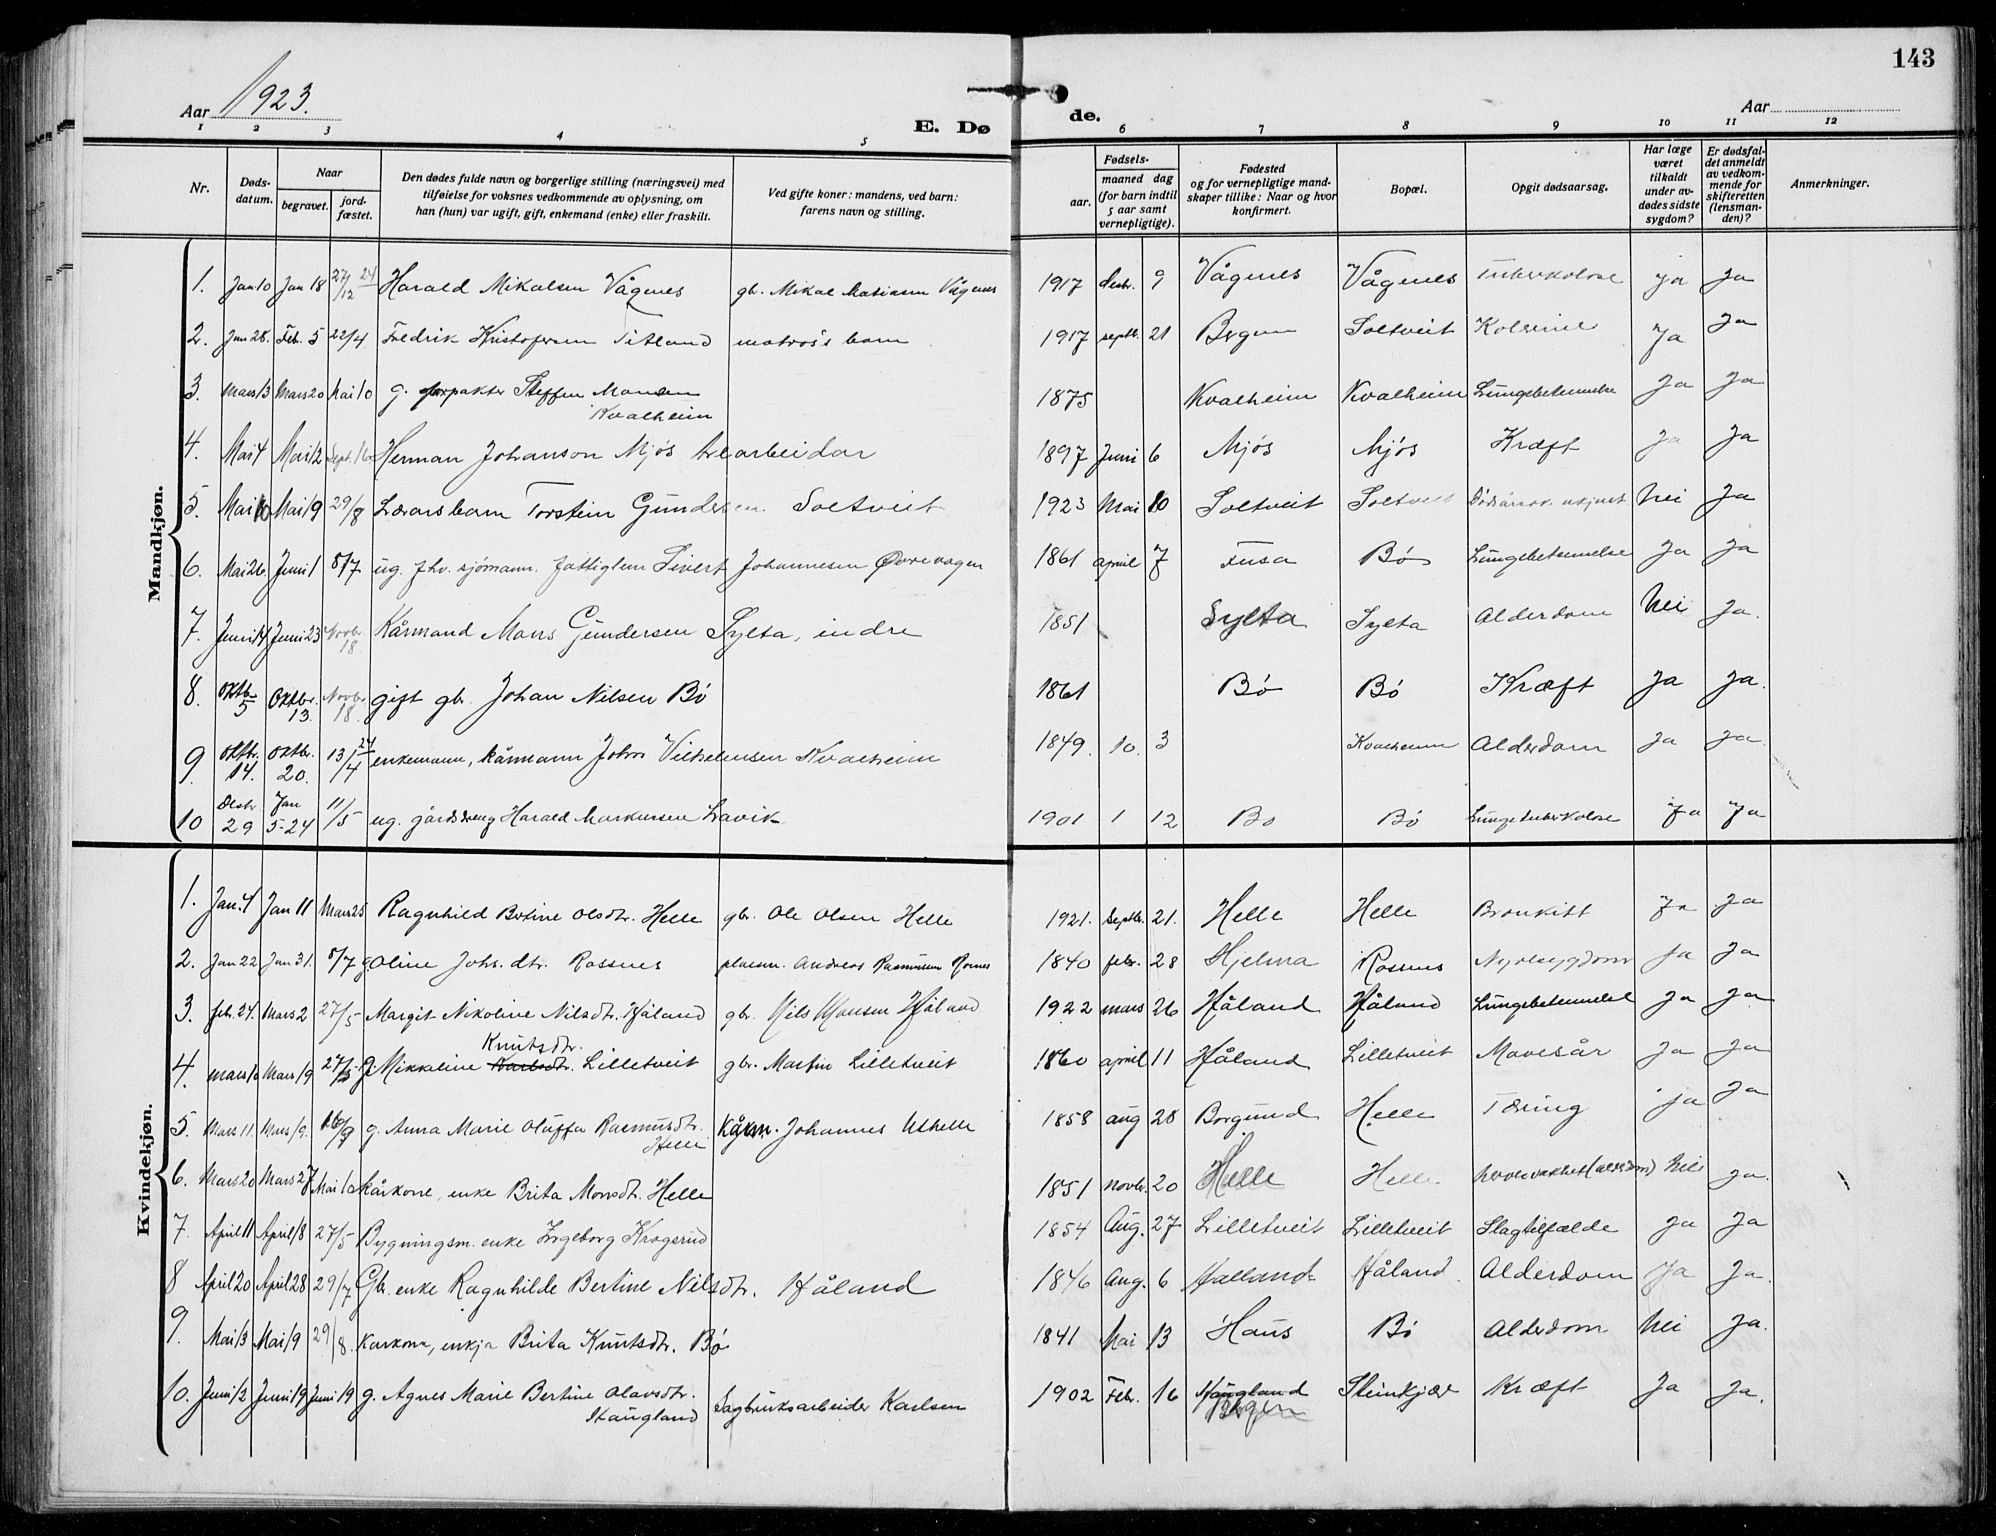 143
Aar 1923.
E. Dø
de.
Aar
1 2 3 4 5 6 7 8 9 10 11 12
Nr.
Døds-
datum.
Naar
begravet.
jord-
fæstet.
Den dødes fulde navn og borgerlige stilling (næringsvei) med
tilføielse for voksnes vedkommende av oplysning, om
han (hun) var ugift, gift, enkemand (enke) eller fraskilt.
Ved gifte koner: mandens, ved barn:
farens navn og stilling.
Fødsels-
aar.
maaned dag
(for barn indtil
5 aar samt
vernepligtige).
Fødested
og for vernepligtige mand-
skaper tillike: Naar og hvor
konfirmert.
Bopæl.
Opgit dødsaarsag.
Har læge
været
tilkaldt
under av-
dødes sidste
sygdom?
Er dødsfal-
det anmeldt
av vedkom-
mende for
skifteretten
(lensman-
den)?
Anmerkninger.
Mandkjøn.
1. Jan 10 Jan 18 27/12 24 Harald Mikalsen Vågenes gb. Mikal Matiasen Vågenes 1917 desbr. 9 Vågenes Vågenes Tuberkolose ja Ja
2. Jan 28. Feb. 5 22/4 Fredrik Kristofersen Titland matros's barn 1917 septb. 21 Bergen Soltveit Ja Ja
3. Mars 13 Mars 20 Mai 10 g. forpakter Steffen Monsen
Kvalheim 1875 Kvalheim Kvalheim Lungebetennelse Ja Ja
4. Mai 4 Mai 12 Sept. 16 Herman Johanson Mjøs arbeidar 1897 Juni 6 Mjøs Mjøs Kræft Ja Ja
5. Mai 10 Mai 19 29/8 Lærarsbarn Torstein Gundersen Soltveit 1923 Mai 10 Soltveit Soltveit Nei Ja
6. Mai 26. Juni 1 8/7 ug. fhv. sjømann. fattiglem Sivert Johannesen Øvrevagen 1861 april 7 Fusa Bø Lungebetennelse Ja Ja
7. Juni 14 Juni 23 Novbr. 18 Kårmand Mons Gundersen Sylta, indre 1851 Sylta Sylta Alderdom Nei Ja.
8. Oktb. 5 Oktbr. 13. Novbr. 18. gift gbr. Johan Nilsen Bø 1861 Bø Bø Kræft Ja Ja.
9. Oktbr. 14. Oktbr. 20. 13/4 24 enkemann, kårmann Johs Vilhelmsen Kvalheim 1849. 10. 3 Kvalheim Alderdom Ja Ja.
10 Desbr 29 Jan 5-24 11/5 ug. gårdsdreng Harald Markussen Lavik 1901 1 12 Bø Bø Lungetuberkolose Ja Ja
Kvindekjøn.
1. Jan. 4 Jan 11 Mars 25 Ragnhild Bertine Olsdtr. Helle gbr. Ole Olsen Helle 1921. Septbr. 21. Helle Helle Bronkitt Ja Ja
2. Jan 22 Jan 31. 8/7 g. Oline Johs. dtr. Rossnes plassm. Andreas Rasmussen Rosnes 1840 febr. 28 Hjelma Rossnes Nyresygdom Ja Ja
3. feb. 24. Mars 2 27/5 Margit Nikoline Nilsdtr. Håland gbr. Nils Monsen Håland 1922 mars 26 Håland Håland Lungebetennelse Ja Ja
Knutsdtr.
4. mars 10 Mars 19 27/5 g. Mikkaline Karlsdtr. Lilletveit gbr. Martin Lilletveit 1860 april 11 Håland Lilletveit Mavesår Ja Ja
5. Mars 11. Mars 19. 16/9 g. Anna Marie Oluffa Rasmusdtr.
Helle Kårm. Johannes Uthelle 1858 aug 28 Borgund Helle Tæring Ja Ja
6. Mars 20 Mars 27 Mai 10 kårkone, enke Brita Monsdtr. Helle 1851 novbr. 20 Helle Helle. (alderdom) Nei Ja.
7. April 11 April 18 27/5 Bygningsm. enke Ingeborg Krogsrud 1854 Aug. 27 Lilletveit Lilletveit Slagtilfælde Ja Ja
8 April 20 April 28 29/7 Gbr. enke Ragnhilde Bertine Nilsdtr. Håland 1846 Aug. 6 Halland Håland. Alderdom Ja Ja.
9. Mai 13 Mai 19 29/8. Karkone, enkja Brita Knutsdtr. Bø 1841 Mai 13 Haus Bø Alderdom Nei Ja.
10. Juni 12 Juni 19 Juni 19 g. Agnes Marie Bertine Olavsdtr.
Staugland Sagbruksarbeider Karlsen 1902 Febr. 16 Haugland
Bergen Steinkjær Kræft Ja Ja.